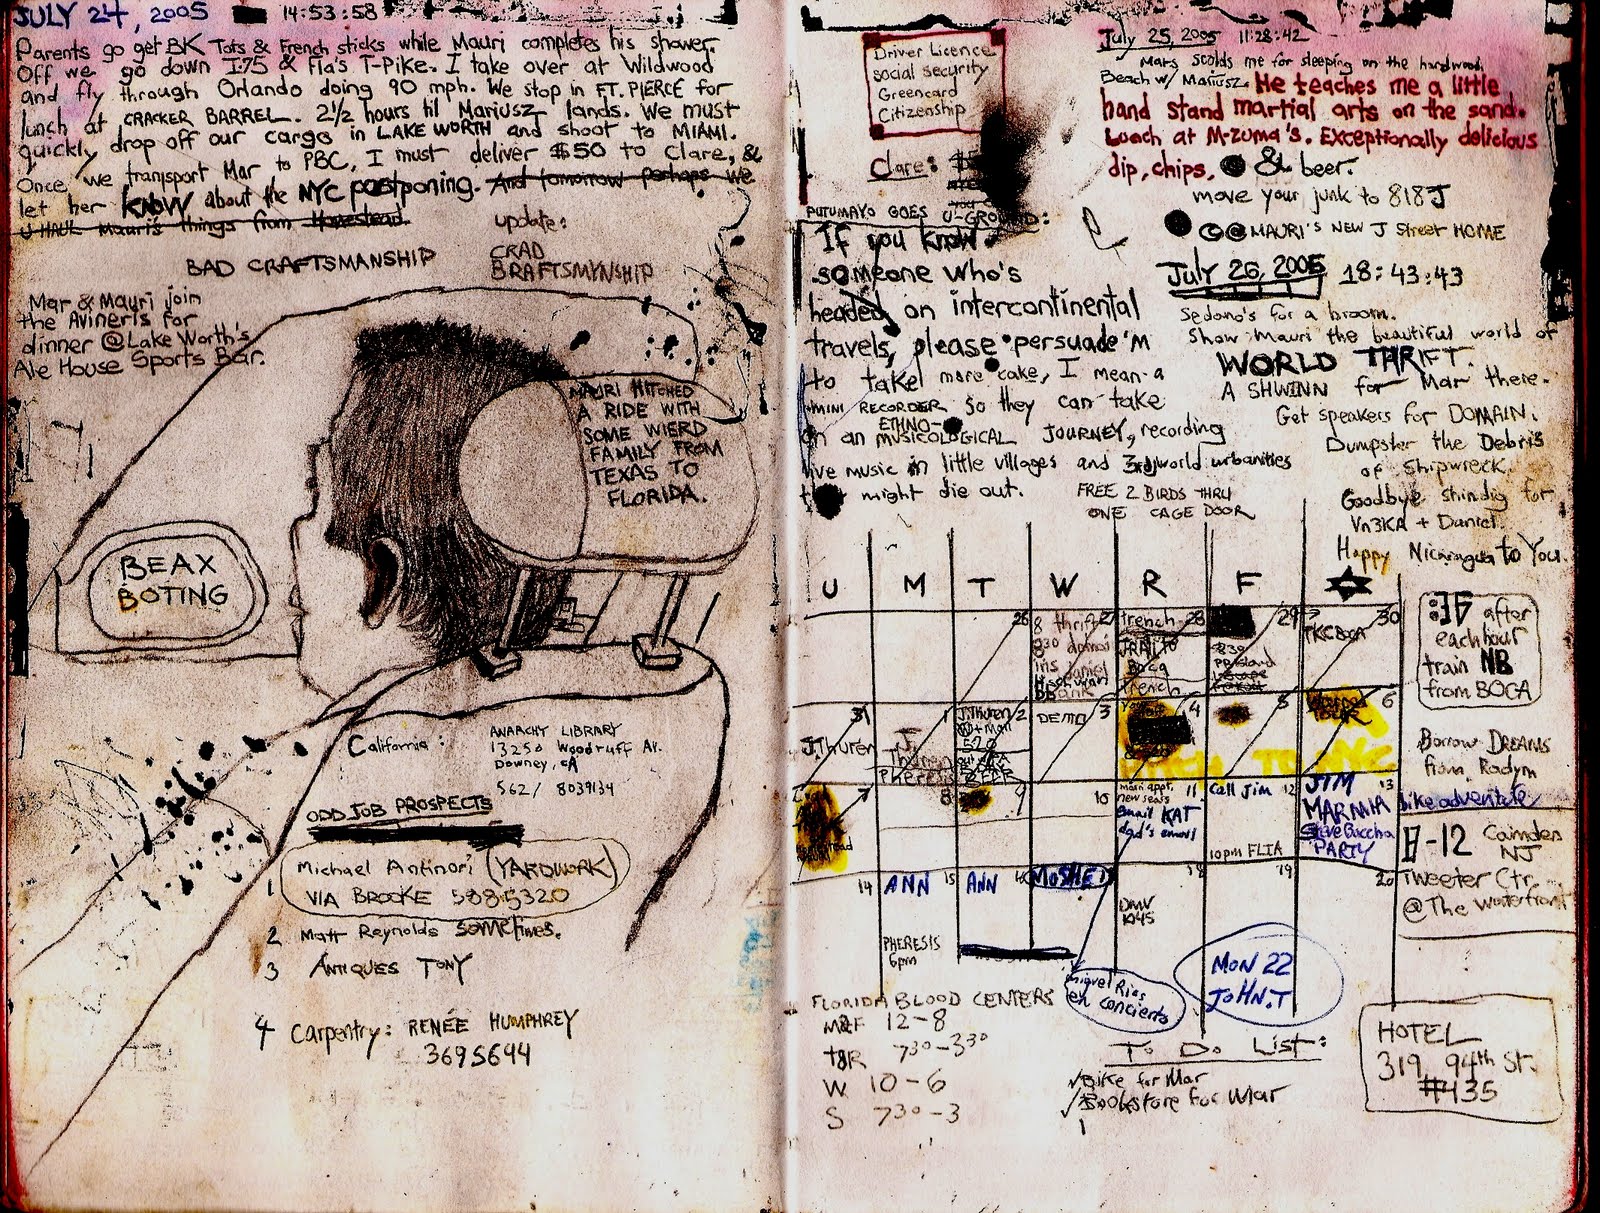 JULY 24, 2005 14:53:58
Parents go get BK Tots & French sticks while Mauri completes his shower.
Off we go down I-75 & Fla's T-Pike. I take over at Wildwood
and fly through Orlando doing 90 mph. We stop in FT. PIERCE for
lunch at CRACKER BARREL. 2½ hours til Mariusz lands. We must
quickly drop off our cargo in LAKE WORTH and shoot to MIAMI.
Once we transport Mar to PBC, I must deliver $50 to Clare, &
let her KNOW about the NYC postponing. And tomorrow perhaps we
U HAUL Mauri's things from Homestead
update:
BAD CRAFTSMANSHIP
CRAD
BRAFTSMYNSHIP
Mar & Mauri join
the Avineris for
dinner @ Lake Worth's
Ale House Sports Bar.
MAURI HITCHED
A RIDE WITH
SOME WIERD
FAMILY FROM
TEXAS TO
FLORIDA.
BEAX
BOTING
California:
ANARCHY LIBRARY
13250 Woodruff Av.
Downey, CA
562/ 8039134
ODD JOB PROSPECTS
1 Michael Antinori (YARDWORK)
VIA BROOKE 5885320
2 Matt Reynolds sometimes.
3 ANTIQUES TONY
4 Carpentry: RENÉE HUMPHREY
3695694
Driver Licence
social security
Greencard
Citizenship
Clare:
PUTUMAYO GOES U-GROUND:
If you know
someone who's
headed on intercontinental
travels, please persuade 'M
to take more cake, I mean a
MINI RECORDER so they can take
ETHNO-
on an MUSICOLOGICAL JOURNEY, recording
live music in little villages and 3rd world urbanities
that might die out.
FREE 2 BIRDS THRU
ONE CAGE DOOR
July 25, 2005 11:28:42
Mars scolds me for sleeping on the hardwood.
Beach w/ Mariusz. He teaches me a little
hand stand martial arts on the sand.
Lunch at M-zuma's. Exceptionally delicious
dip, chips, & beer.
move your junk to 818 J
@ MAURI'S NEW J Street HOME
July 26, 2005 18:43:43
Sedano's for a broom.
Show Mauri the beautiful world of
WORLD THRIFT.
A SHWINN for Mar there.
Get speakers for DOMAIN.
Dumpster the Debris
of Shipwreck.
Goodbye shindig for
Vn3KA + Daniel.
Happy Nicaragua to You.
U M T W R F
26 27 28 29 30
8 thrift
French
TKC BOCA
BOCA
French
31 1 2 3 4 5 6
J. Thuren
J. Thuren
DEMO
TOUR
Pheresis
7 8 9 10 11 12 13
new seats
email KAT
dad's email
Call Jim
10pm FLIA
JIM
MARNIA
PARTY
14 15 16 18 19 20
ANN
ANN
MOSHE
DMV
1045
PHERESIS
6pm
Miguel Rios
en concierto
MON 22
JOHN.T
:37 after
each hour
train NB
from BOCA
Borrow DREAMS
from Radym
bike adventure
8-12 Camden
NJ
Tweeter Ctr.
@ The Waterfront
FLORIDA BLOOD CENTERS
M&F 12-8
T&R 7:30-3:30
W 10-6
S 7:30-3
TO DO LIST:
√ Bike for Mar
√ Bookstore for Mar
HOTEL
319 94th St.
#435